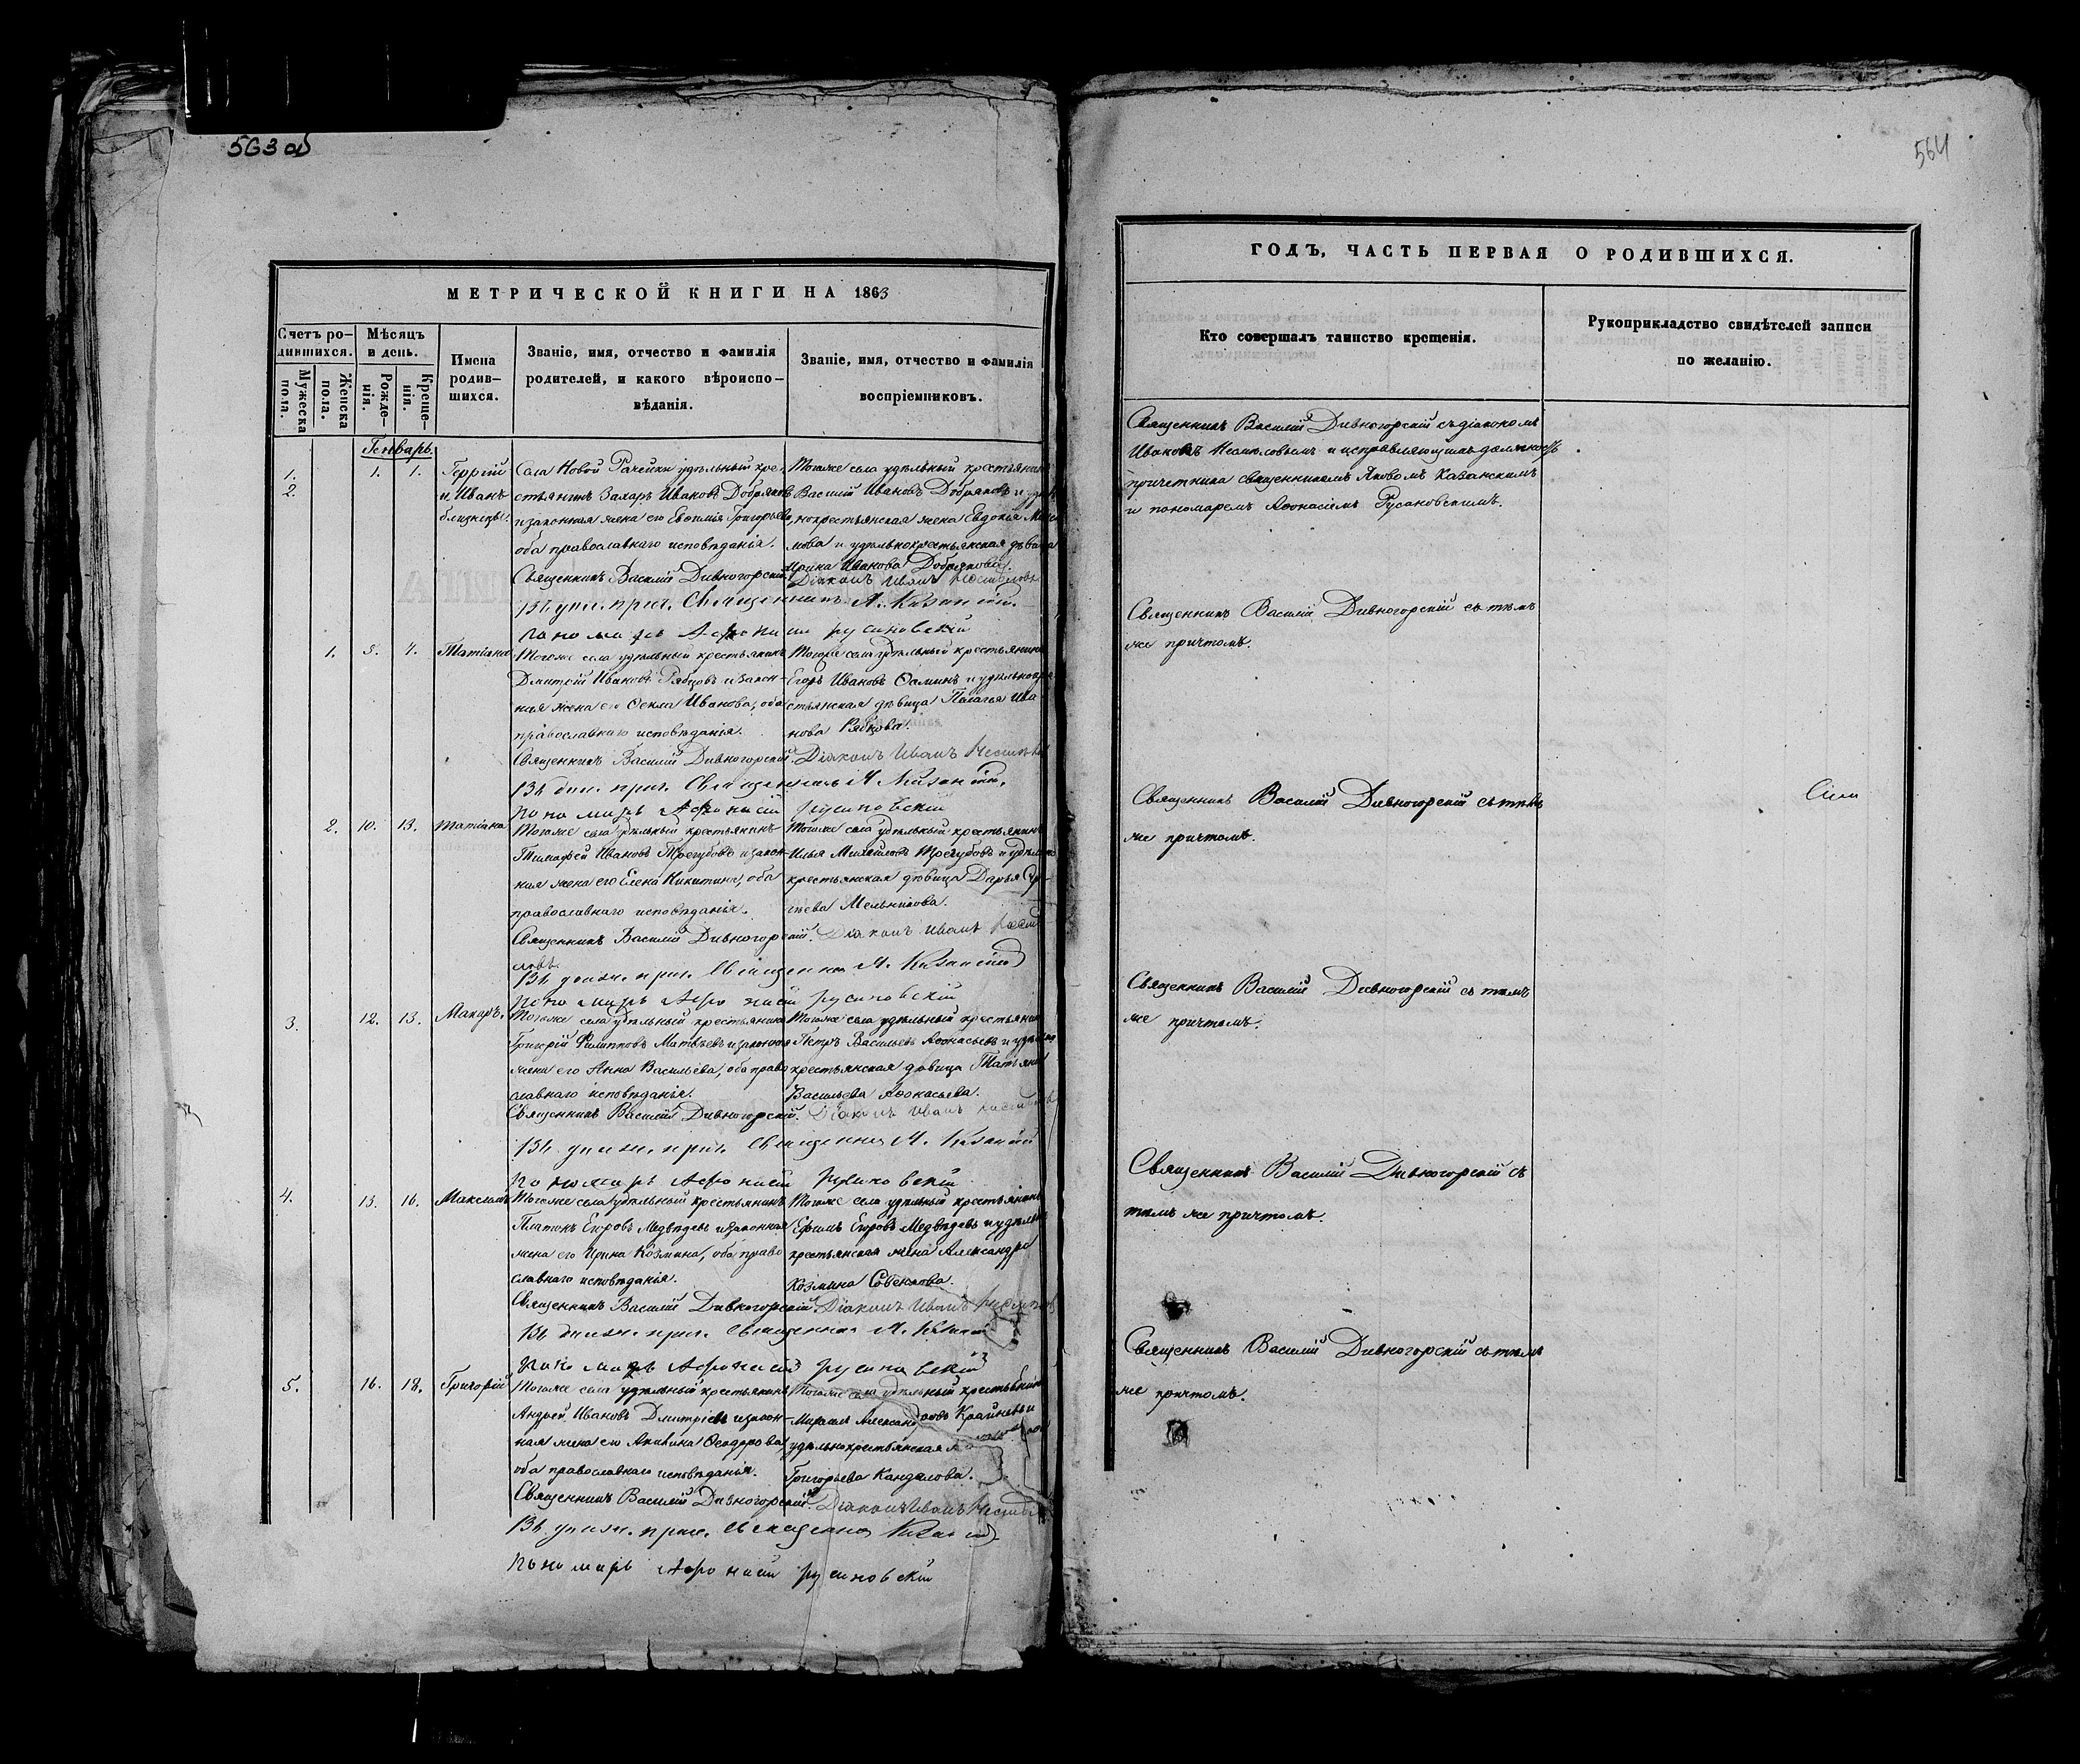 563 об
МЕТРИЧЕСКОЙ КНИГИ НА 1863
Счетъ ро-
дившихся.
Мужеска
пола.
Женска
пола.
Мѣсяцъ
и день.
Рожде-
нія.
Креще-
нія.
Имена
родив-
шихся.
Званіе, имя, отчество и фамилія
родителей, и какого вѣроиспо-
вѣданія.
Званіе, имя, отчество и фамилія
воспріемниковъ.
Генварь.
1.
2.
1. 1.
Георгій
и Иванъ
близнецы.
Села Новой Рачейки удѣльный кре-
стьянинъ Захаръ Ивановъ Добряковъ
и законная жена его Евѳимія Григорьева,
оба православнаго исповѣданія.
Священникъ Василій Дивногорскій.
Тогоже села удѣльный крестьянинъ
Василій Ивановъ Добряковъ и
нокрестьянская жена Евдокія
мова и удѣльнокрестьянская дѣвица
Ирина Иванова Добрякова.
Діаконъ Иванъ
Священникъ А. Казанскій.
пономарь Афонасій Русановскій
1. 3. 7. Татіана
Тогоже села удѣльный крестьянинъ
Дмитрій Ивановъ Рябцовъ и закон-
ная жена его Ѳекла Иванова, оба
православнаго исповѣданія.
Священникъ Василій Дивногорскій.
Тогоже села удѣльный крестьянинъ
Егоръ Ивановъ Ѳоминъ и удѣльнокре-
стьянская дѣвица Пелагья Ива-
нова Рябцова.
Діаконъ Иванъ
Въ долж. прич. Священникъ А. Казанскій.
пономарь Афонасій Русановскій
2. 10. 13. Татіана
Тогоже села удѣльный крестьянинъ
Тимофей Ивановъ Трегубовъ и закон-
ная жена его Елена Никитина, оба
православнаго исповѣданія.
Священникъ Василій Дивногорскій.
Тогоже села удѣльный крестьянинъ
Илья Михайловъ Трегубовъ и удѣльно
крестьянская дѣвица Дарья Сер-
гѣева Мельникова.
Діаконъ Иванъ
Въ долж. прич. Священникъ А. Казанскій
пономарь Афонасій Русановскій
3. 12. 13. Макаръ.
Тогоже села удѣльный крестьянинъ
Григорій Филипповъ Матвѣевъ и законная
жена его Анна Васильева, оба право
славнаго исповѣданія.
Священникъ Василій Дивногорскій.
Тогоже села удѣльный крестьянинъ
Петръ Васильевъ Аѳонасьевъ и удѣльно
крестьянская дѣвица Татьяна
Васильева Аѳонасьева.
Діаконъ Иванъ
Въ долж. прич. Священникъ А. Казанскій
пономарь Афонасій Русановскій
4. 13. 16. Максимъ
Тогоже села удѣльный крестьянинъ
Платонъ Егоровъ Медвѣдевъ и законная
жена его Ирина Козмина, оба право
славнаго исповѣданія.
Священникъ Василій Дивногорскій.
Тогоже села удѣльный крестьянинъ
Ефимъ Егоровъ Медвѣдевъ и удѣльно
крестьянская жена Александра
Козмина
Діаконъ Иванъ
Въ должн. прич. священникъ А. Казанскій
пономарь Афонасій Русановскій
5. 16. 18. Григорій
Тогоже села удѣльный крестьянинъ
Андрей Ивановъ Дмитріевъ и закон-
ная жена его Акилина Ѳеодорова,
оба православнаго исповѣданія.
Священникъ Василій Дивногорскій.
Тогоже села удѣльный крестьянинъ
Александровъ Крайневъ и
удѣльнокрестьянская
Григорьева Кандалова.
Діаконъ Иванъ
Въ должн. прич. священникъ Казанскій
пономарь Афонасій Русановскій
564
ГОДЪ, ЧАСТЬ ПЕРВАЯ О РОДИВШИХСЯ.
Кто совершалъ таинство крещенія.
Рукоприкладство свидѣтелей записи
по желанію.
Священникъ Василій Дивногорскій съ діакономъ
Иваномъ и исправляющимъ должность
причетника священникомъ Яковомъ Казанскимъ
и пономаремъ Аѳонасіемъ Русановскимъ.
Священникъ Василій Дивногорскій съ тѣмъ
же причтомъ.
Священникъ Василій Дивногорскій съ тѣмъ
же причтомъ.
Священникъ Василій Дивногорскій съ тѣмъ
же причтомъ.
Священникъ Василій Дивногорскій съ
тѣмъ же причтомъ.
Священникъ Василій Дивногорскій съ тѣмъ
же причтомъ.